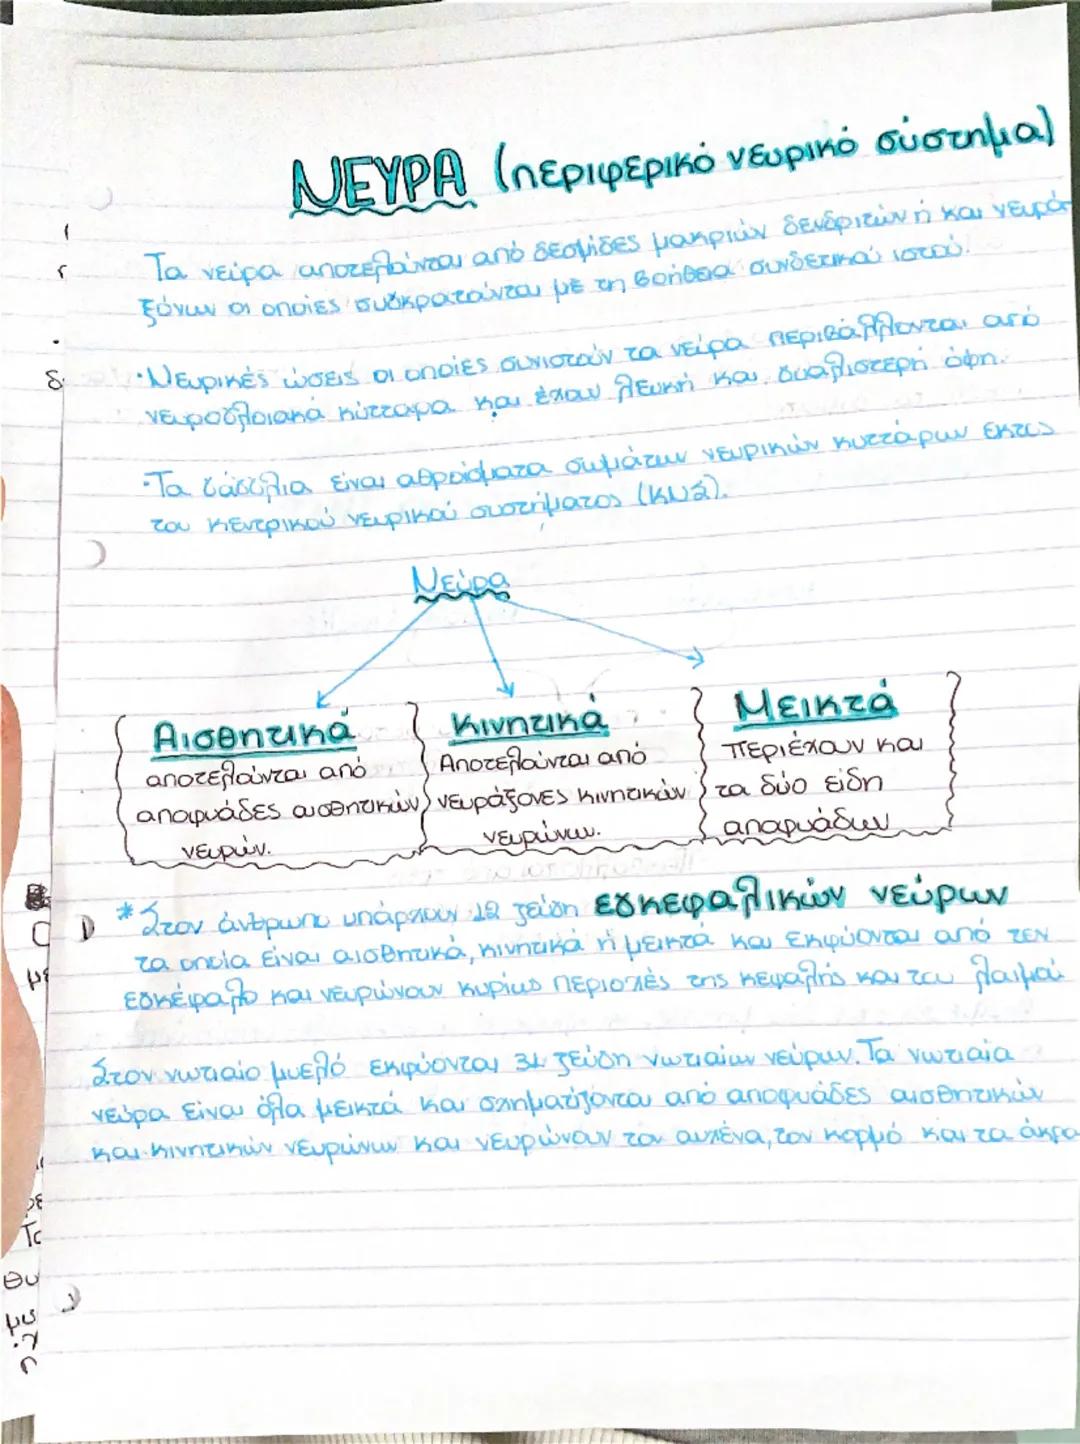 ΝΕΥΡΑ (περιφερικό νευρικό σύστημα)
Τα νεύρα αποτελούνται από δεσμίδες μακριών δενδριτών ή και νευρα-
ξόνων οι οποίες συγκρατούνται με τη βοήθεια συνδετικού ιστού.
·Νευρικές ώσεις οι οποίες συνιστούν τα νεύρα περιβάλλονται από
νευρογλοιακά κύτταρα και έχουν λευκή και γυαλιστερή όψη.
·Τα γάγγλια είναι αθροίσματα σωμάτων νευρικών κυττάρων εκτός
του κεντρικού νευρικού συστήματος (ΚΝΣ).
Νεύρα
Αισθητικά
αποτελούνται από
αποφυάδες αισθητικών
νευρών.
Κινητικά
Αποτελούνται από
νευράξονες κινητικών
νευρώνων.
Μεικτά
περιέχουν και
τα δύο είδη
αποφυάδων
*Στον άνθρωπο υπάρχουν 12 ζεύγη εγκεφαλικών νεύρων
τα οποία είναι αισθητικά, κινητικά ή μεικτά και εκφύονται από τον
εγκέφαλο και νευρώνουν κυρίως περιοχές της κεφαλής και του λαιμού
Στον νωτιαίο μυελό εκφύονται 31 ζεύγη νωτιαίων νεύρων. Τα νωτιαία
νεύρα είναι όλα μεικτά και σχηματίζονται από αποφυάδες αισθητικών
και κινητικών νευρώνων και νευρώνουν τον αυχένα, τον κορμό και τα άκρα